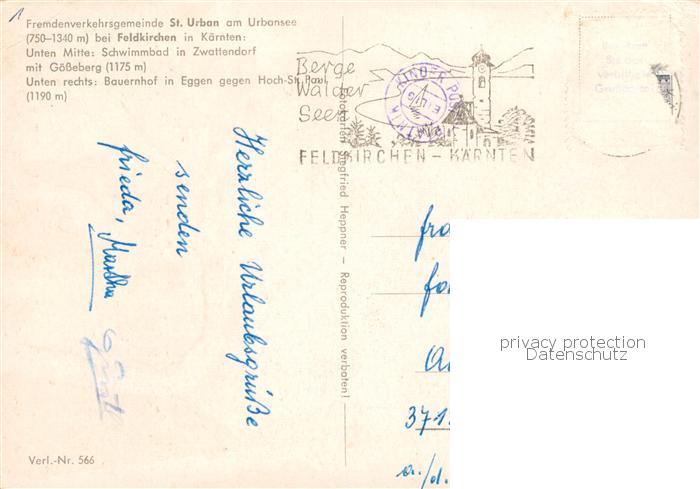 1
Fremdenverkehrsgemeinde St. Urban am Urbansee
(750–1340 m) bei Feldkirchen in Kärnten:
Unten Mitte: Schwimmbad in Zwattendorf
mit Gößeberg (1175 m)
Unten rechts: Bauernhof in Eggen gegen Hoch-St. Paul
(1190 m)
Berge
Wälder
Seen
KINDER POST
FELDKIRCHEN – KÄRNTEN
Herzliche Urlaubsgrüße
senden
frieda, Martha
Siegfried Heppner – Reproduktion verboten!
371
a./d.
privacy protection
Datenschutz
Verl.-Nr. 566